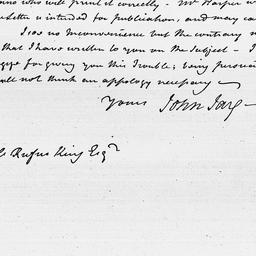 who will print it correctly. Mr Harper
Letter is intended for publication, and may
no Inconvenience but the contrary
that I have written to you on the Subject – I
for giving you this Trouble; being
will not think an appology necessary —
Yours John Jay –
Rufus King Esqr